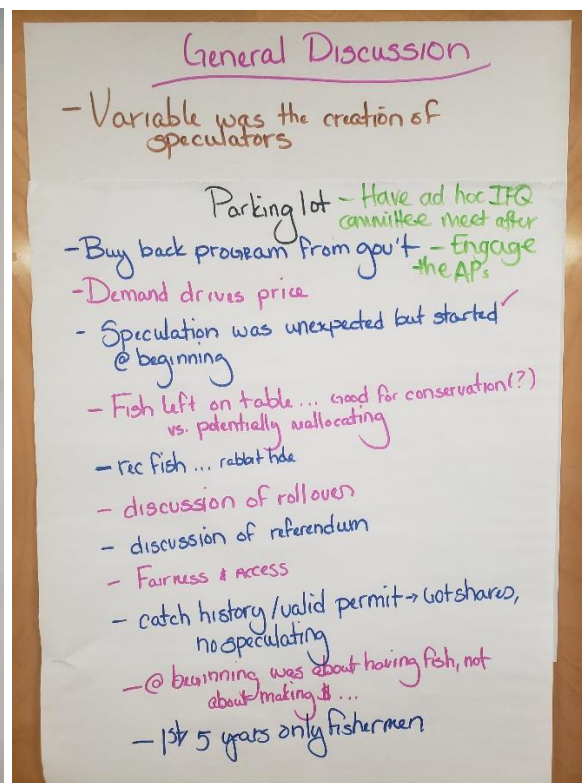 General Discussion
- Variable was the creation of
speculators
Parking lot - Have ad hoc IFQ
committee meet after
- Buy back program from gov't - Engage
the APs
- Demand drives price
- Speculation was unexpected but started ✓
@ beginning
- Fish left on table... Good for conservation(?)
vs. potentially reallocating
- rec fish... rabbit hole
- discussion of rollover
- discussion of referendum
- Fairness & Access
- catch history/valid permit → Got shares,
no speculating
- @ beginning was about having fish, not
about making $...
- 1st 5 years only fishermen